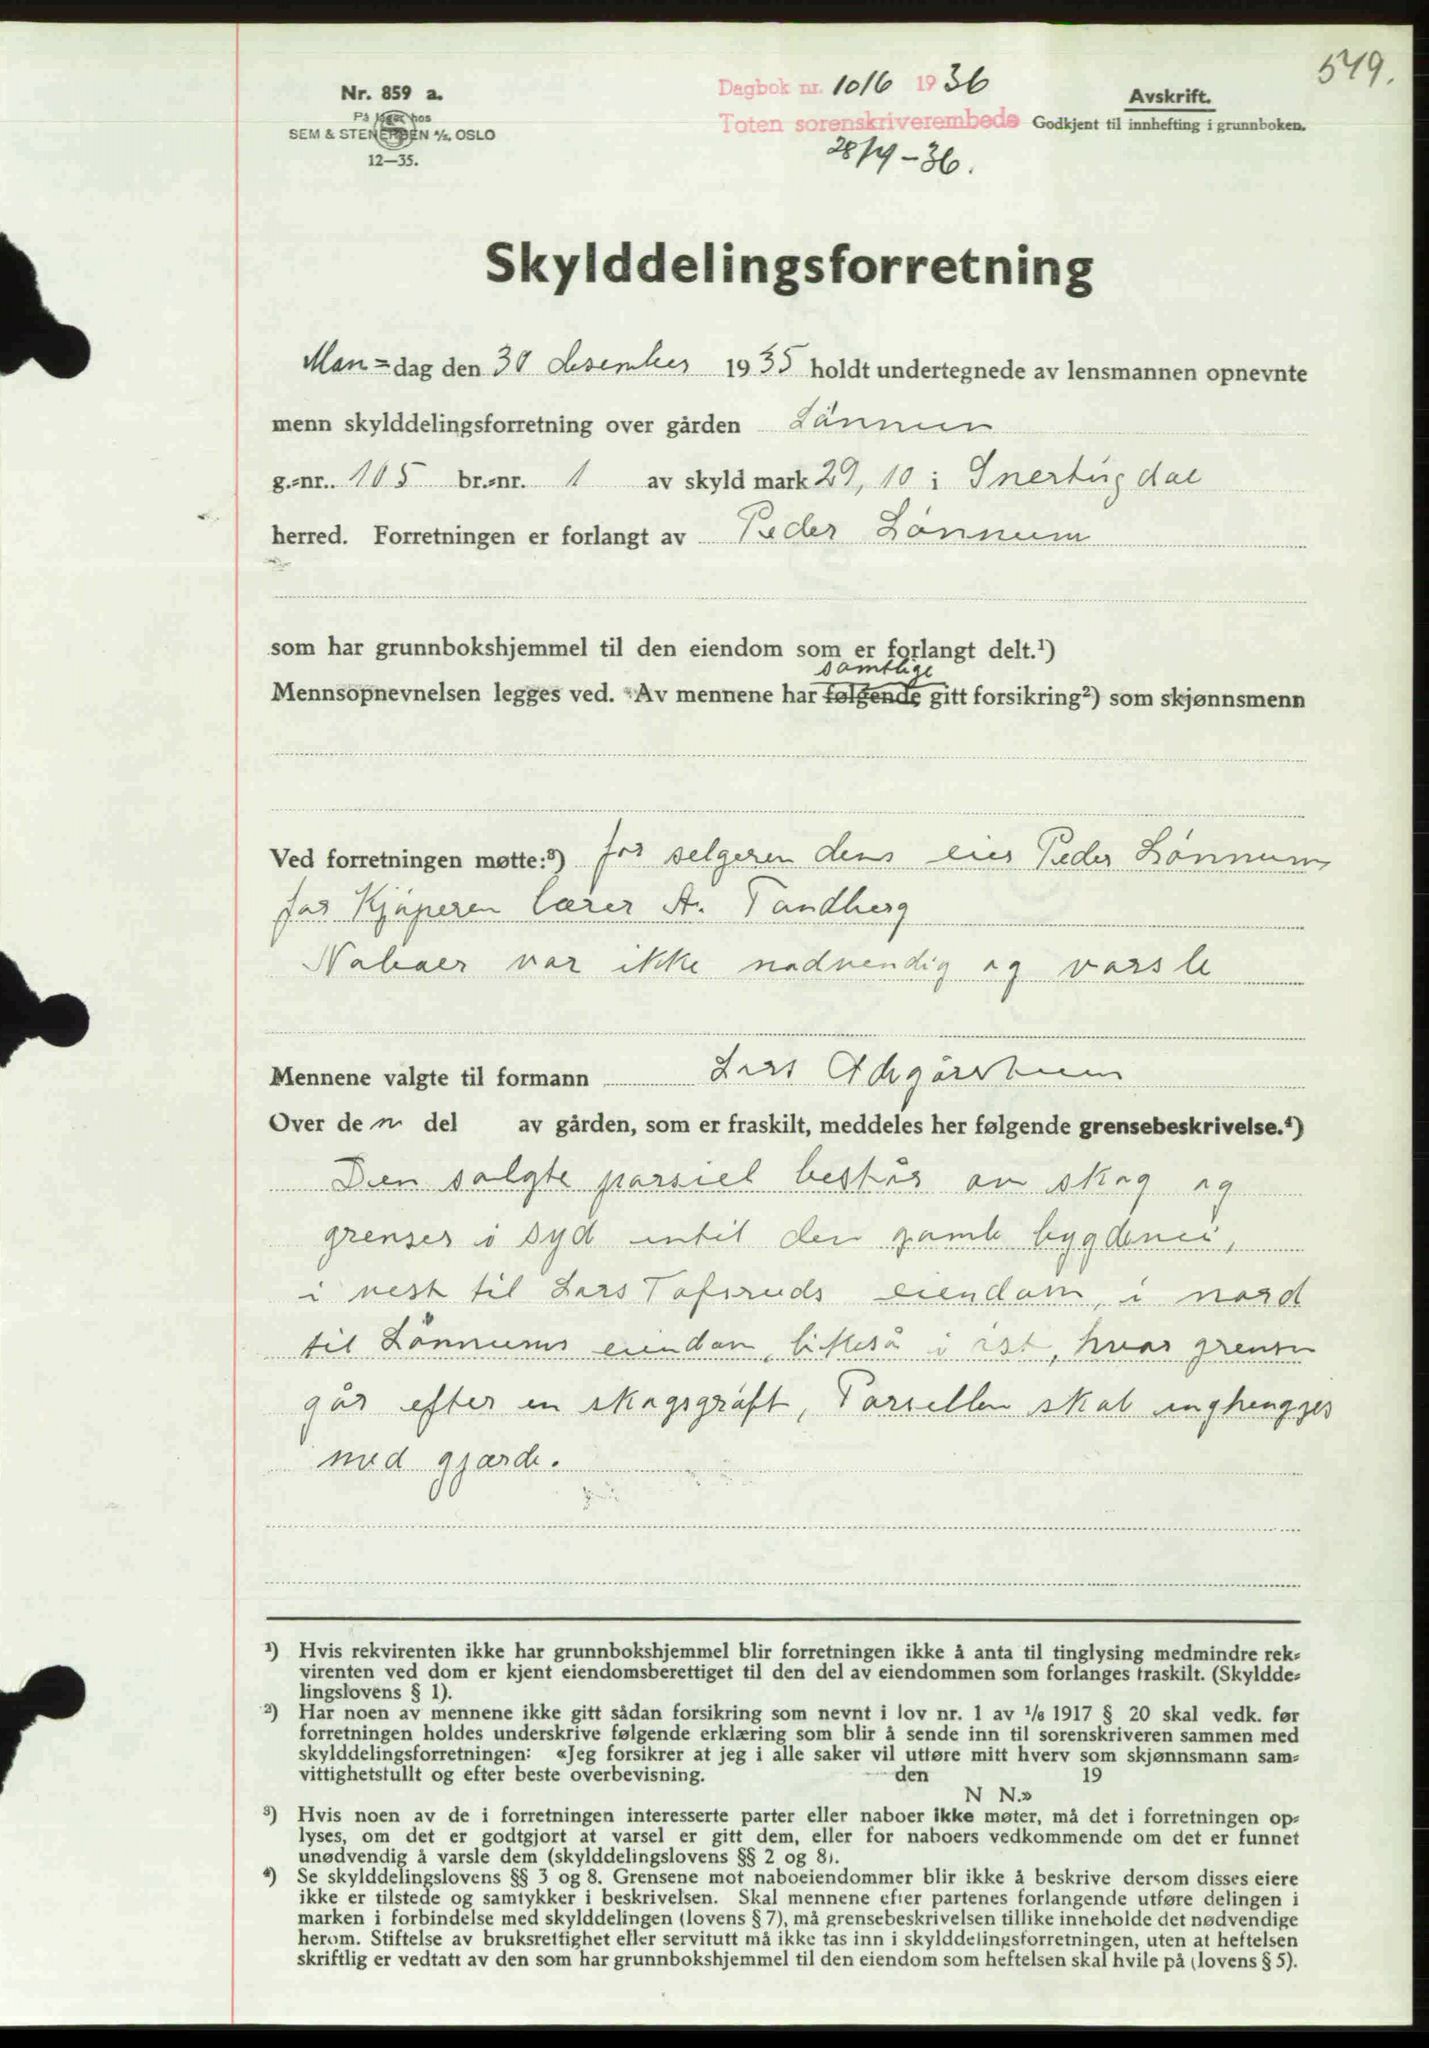 549.
Nr. 859 a.
På lager hos
SEM & STENERSEN A/S. OSLO
12—35.
Dagbok nr. 1016 1936
Toten sorenskriverembede
28/4-36.
Avskrift.
Godkjent til innhefting i grunnboken.
Skylddelingsforretning
Man=dag den 30 desember 1935 holdt undertegnede av lensmannen opnevnte
menn skylddelingsforretning over gården Lønnum
g.=nr.. 105 br.=nr. 1 av skyld mark 29,10 i Snertingdal
herred. Forretningen er forlangt av Peder Lønnum
som har grunnbokshjemmel til den eiendom som er forlangt delt.¹)
samtlige
Mennsopnevnelsen legges ved. Av mennene har følgende gitt forsikring²) som skjønnsmenn
Ved forretningen møtte:³) for selgeren dens eier Peder Lønnum
for Kjøperen lærer A. Tandberg
Naboer var ikke nødvendig og varsle
Mennene valgte til formann Lars
Over den del av gården, som er fraskilt, meddeles her følgende grensebeskrivelse.⁴)
Den solgte parsiel består av skog og
grenser i syd intil den gamle bygdevei,
i vest til Lars Tofsruds eiendom, i nord
til Lønnums eiendom, likeså i øst, hvor grensen
går efter en skogsgrøft, Parsellen skal inghengges
med gjærde.
¹) Hvis rekvirenten ikke har grunnbokshjemmel blir forretningen ikke å anta til tinglysing medmindre rek=
virenten ved dom er kjent eiendomsberettiget til den del av eiendommen som forlanges fraskilt. (Skyldde=
lingslovens § 1).
²) Har noen av mennene ikke gitt sådan forsikring som nevnt i lov nr. 1 av 1/6 1917 § 20 skal vedk. før
forretningen holdes underskrive følgende erklæring som blir å sende inn til sorenskriveren sammen med
skylddelingsforretningen: «Jeg forsikrer at jeg i alle saker vil utføre mitt hverv som skjønnsmann sam=
vittighetsfullt og efter beste overbevisning. den 19
N N.»
³) Hvis noen av de i forretningen interesserte parter eller naboer ikke møter, må det i forretningen op=
lyses, om det er godtgjort at varsel er gitt dem, eller for naboers vedkommende om det er funnet
unødvendig å varsle dem (skylddelingslovens §§ 2 og 8).
⁴) Se skylddelingslovens §§ 3 og 8. Grensene mot naboeiendommer blir ikke å beskrive dersom disses eiere
ikke er tilstede og samtykker i beskrivelsen. Skal mennene efter partenes forlangende utføre delingen i
marken i forbindelse med skylddelingen (lovens § 7), må grensebeskrivelsen tillike inneholde det nødvendige
herom. Stiftelse av bruksrettighet eller servitutt må ikke tas inn i skylddelingsforretningen, uten at heftelsen
skriftlig er vedtatt av den som har grunnbokshjemmel til den eiendom som heftelsen skal hvile på (lovens § 5).